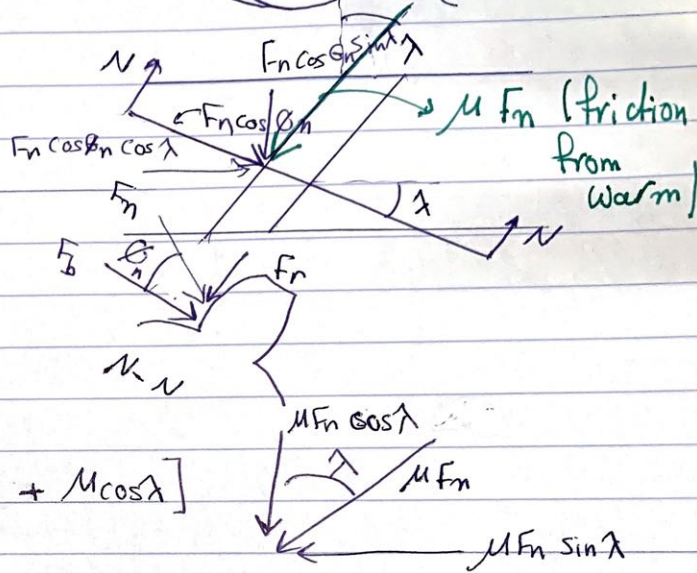 N
Fn cosΦn sinλ
λ
Fn cosΦn
μ Fn (friction
from
warm)
Fn cosΦn cosλ
λ
Fn
N
Fb
Φn
Fr
N-N
μFn cosλ
λ
μFn
+ μcosλ]
μFn sinλ